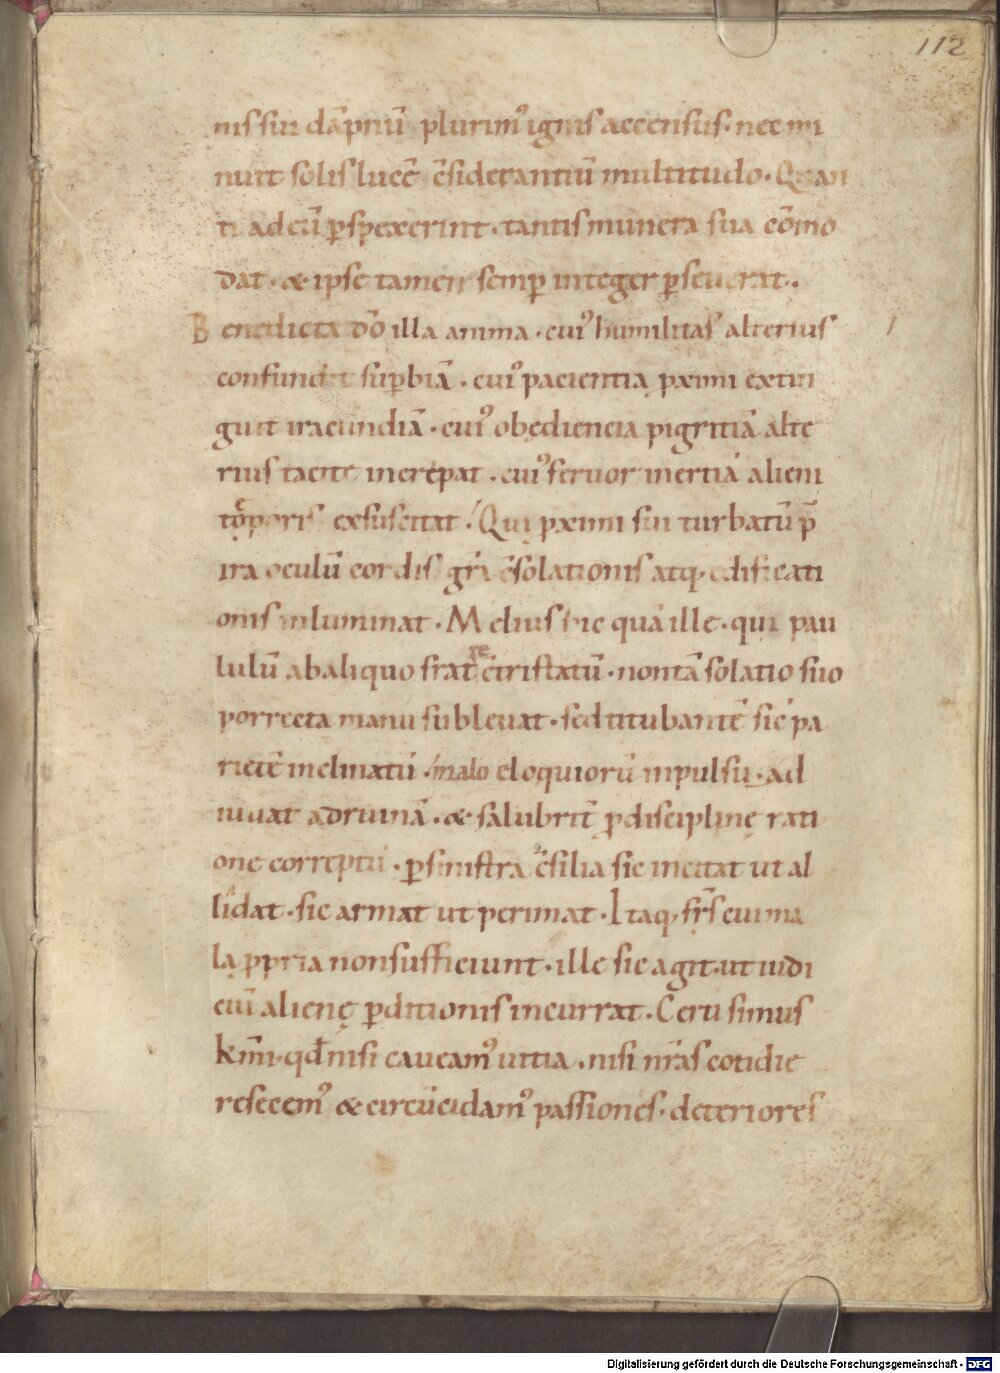 112
nis sui dāpnū plurimꝰ ignis accensus · nec mi
nuit solis lucē c̄siderantiū multitudo · Quan
ti ad eū ꝑspexerint · tantis munera sua cōmo
dat · & ipse tamen semꝑ integer ꝑseuerat ·.
Benedicta dō illa anima · cuiꝰ humilitas alterius
confundit suꝑbiā · cuiꝰ pacientia ꝓximi extin
guit iracundiā · cuiꝰ obediencia pigritiā alte
rius tacite increpat · cuiꝰ feruor inertiā alieni
exsuscitat · Qui ꝓximi sui turbatū p̄
ira oculū cordis gr̄a c̄solationis atq; edificati
onis inluminat · Melius hic quā ille · qui pau
lulū ab aliquo fratre c̄tristatū · non tā solatio suo
porrecta manu subleuat · sed titubantē sic pa
rietē inclinatū · malo eloquiorū inpulsu · ad
iuuat ad ruinā · & salubrit̄ ꝑ disciplinę rati
one correptū · ꝑ sinistra c̄silia sic incitat ut al
lidat · sic armat ut perimat · Itaq; fr̄s cui ma
la ꝓpria non sufficiunt · ille sic agit · ut iudi
ciū alienę ꝑditionis incurrat · Certi simus
km̄i · qđ nisi caueamꝰ uitia · nisi nr̄as cotidie
resecemꝰ & circūcidamꝰ passiones · deteriores
Digitalisierung gefördert durch die Deutsche Forschungsgemeinschaft - DFG